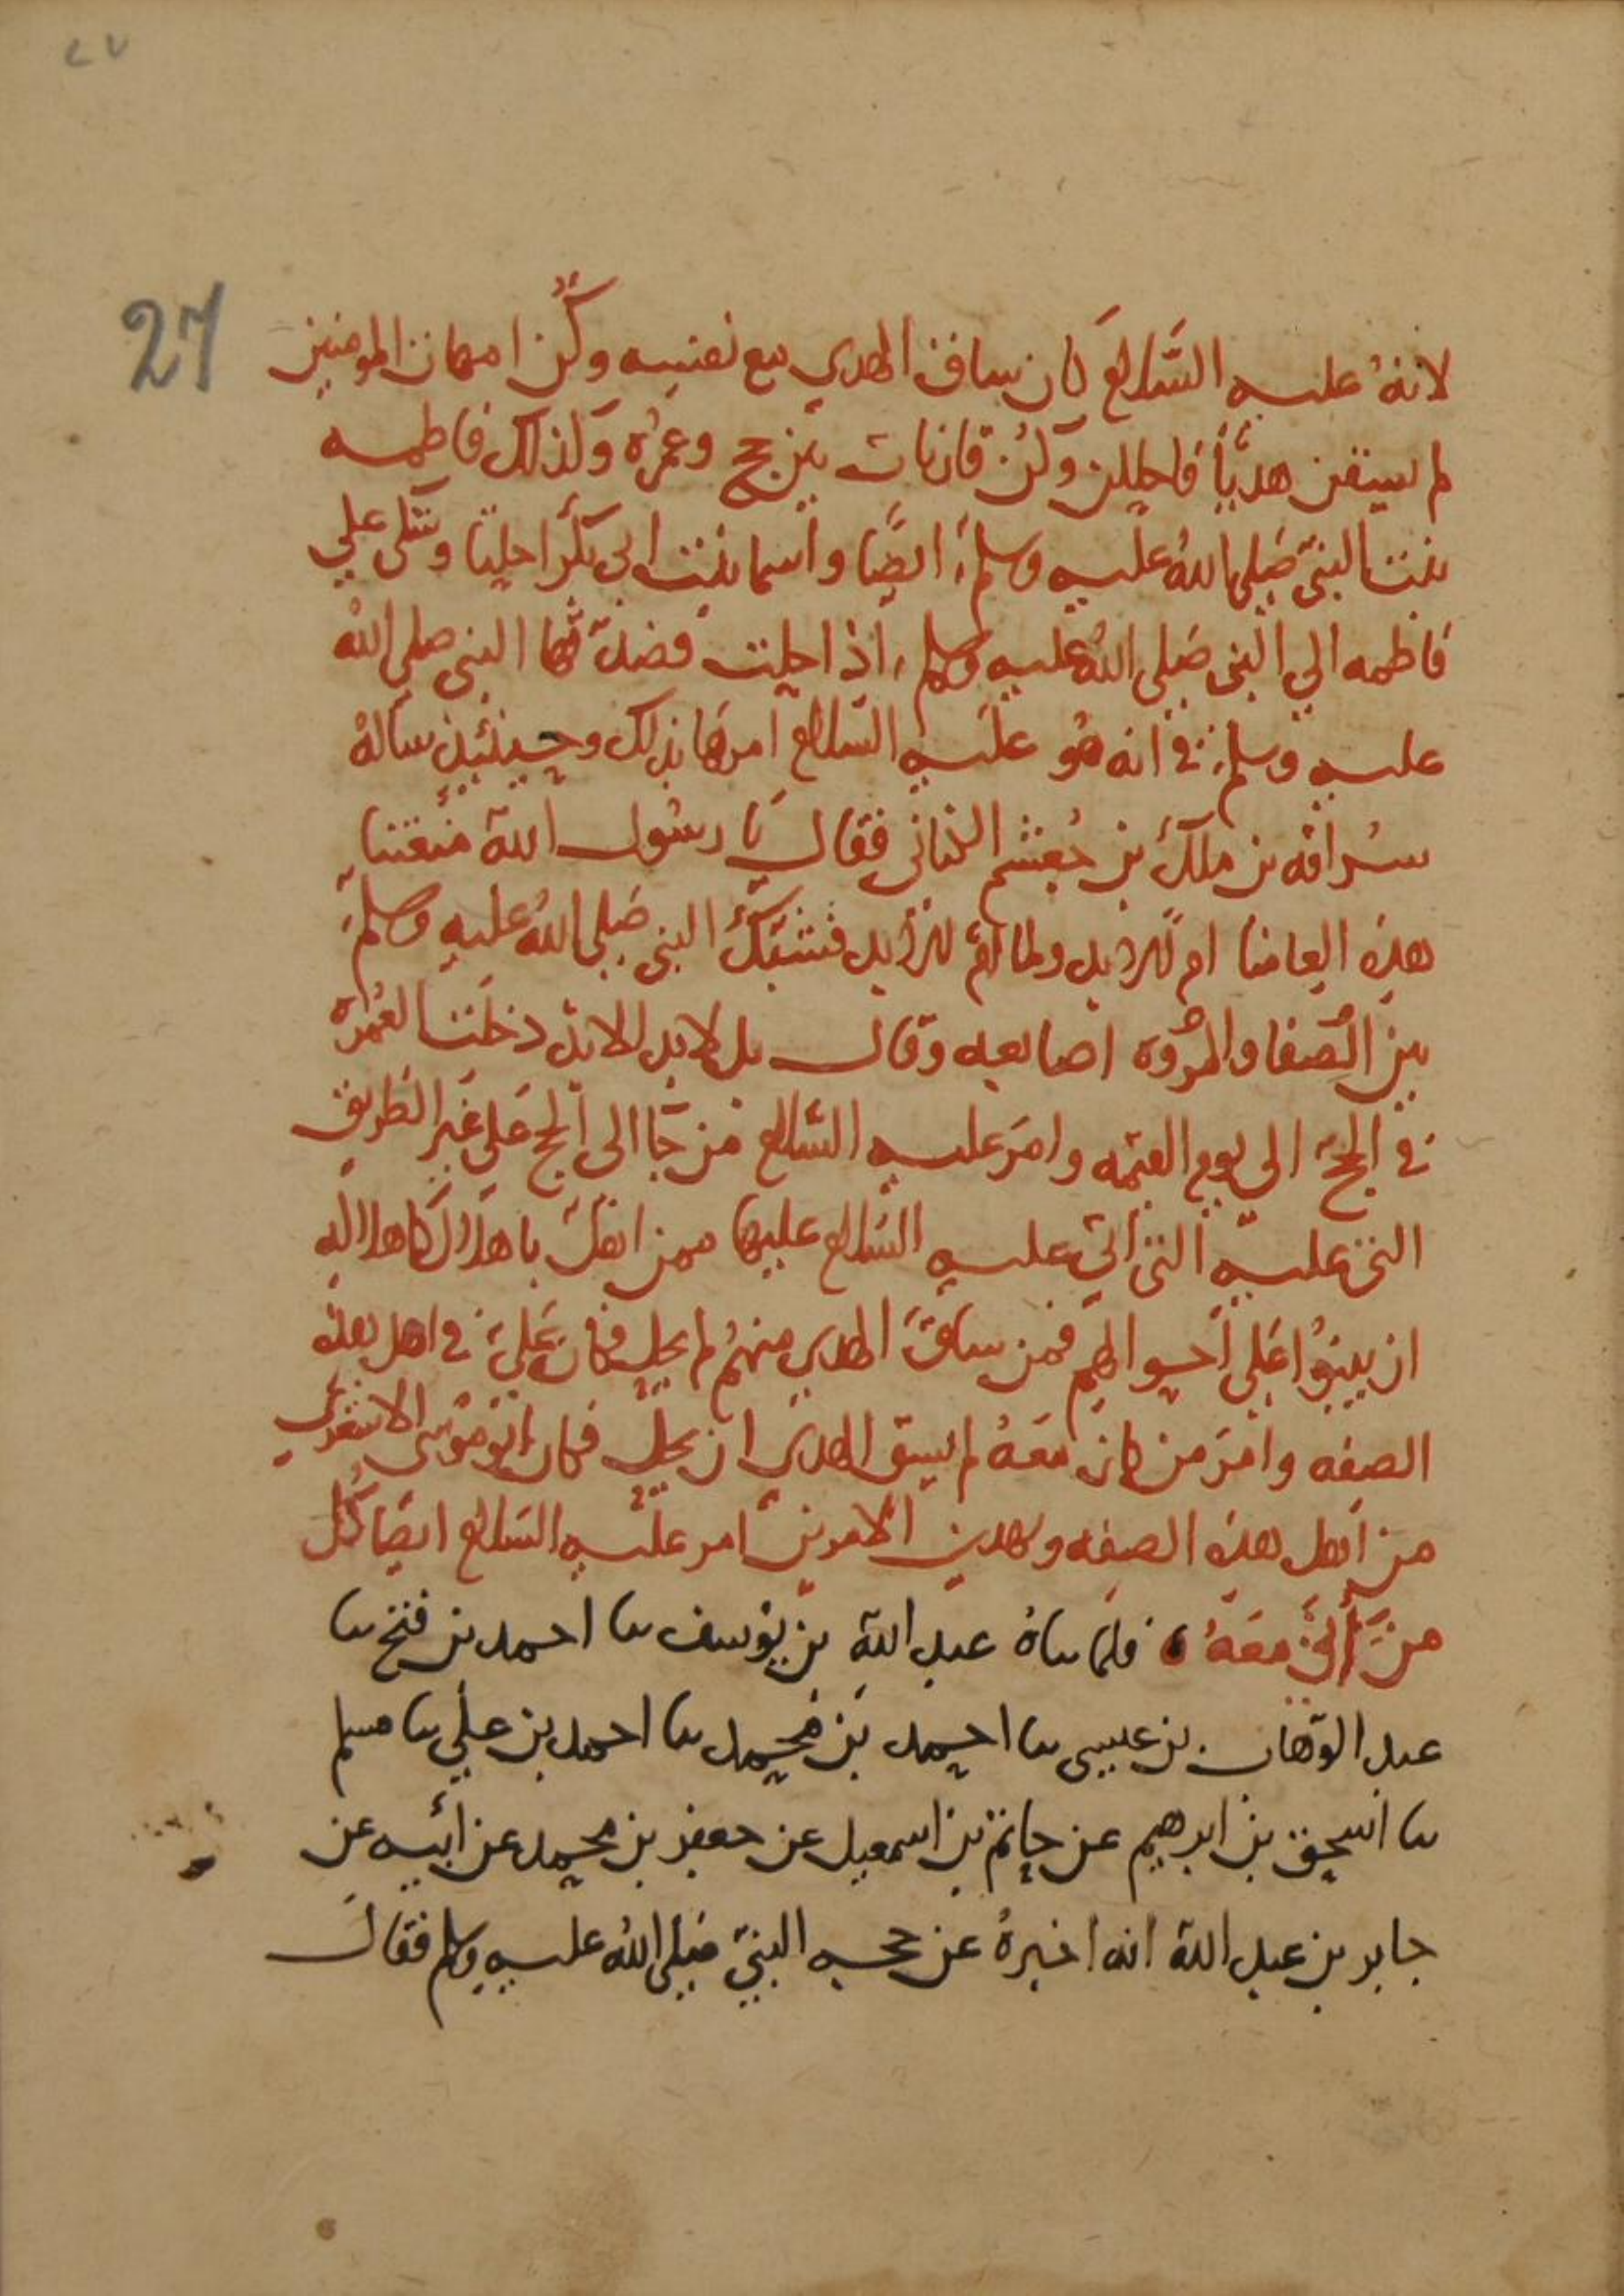 ٢٧
27
لانهُ عليه السَّلام كان ساق الهدي مع نفسه وكُنّ امهات المومنين
لم يسقن هديًا فاحللن وكُنّ قارنات بين حج وعمره وكذلك فاطمه
بنت النبي صَلى اللهُ عليه وسلم ايضًا واسما بنت ابي بكر احلتا وشكى علي
فاطمه الي النبي صَلى اللهُ عليه وسلم اذ احلت فصدّقها النبي صلى الله
عليه وسلم في انه هو عليه السلام امرها بذلك وحينئيذ ساله
سُراقه بن ملك بن جُعشم الكناني فقال يا رسُول الله متعتنا
هذه العامنا ام للابد ولنا ام للابد فشبّك النبي صَلى اللهُ عليه وسلم
بين الصفا والمروه اصابعه وقال بل لابد الابد دخلت العُمره
في الحج الي يوم القيمه وامَر عليه السّلام من جا الى الحج عَلى غير الطريق
التي عليه التي اتى عليه السَّلام عليها ممن اهلّ باهلال كاهلاله
ان يبنُوا عَلى احوالهم فمن ساق الهدي منهمُ لم يحل فكان عَلي في اهل هذه
الصفه وامَر من كان معَهُ لم يسق الهدي ان يحل فكان ابو موسى الاشعري
من اهل هذه الصفه وبهدين الامرين امر عليه السّلام ايضا كُل
من أتى معَهُ ، فلما ساهُ عبد الله بن يوُسف سا احمد بن فتح سا
عبد الوَهاب بن عيسى سا احمد بَن مُحمد سا احمد بن علي سا مسلم
سا اسحق بن ابرهيم عن حاتم بن اسمعيل عن جعفر بن محمد عن ابيه عن
جابر بن عبد الله انه اخبرهُ عن حجه النبيّ صَلى اللهُ عليه وسلم فقال